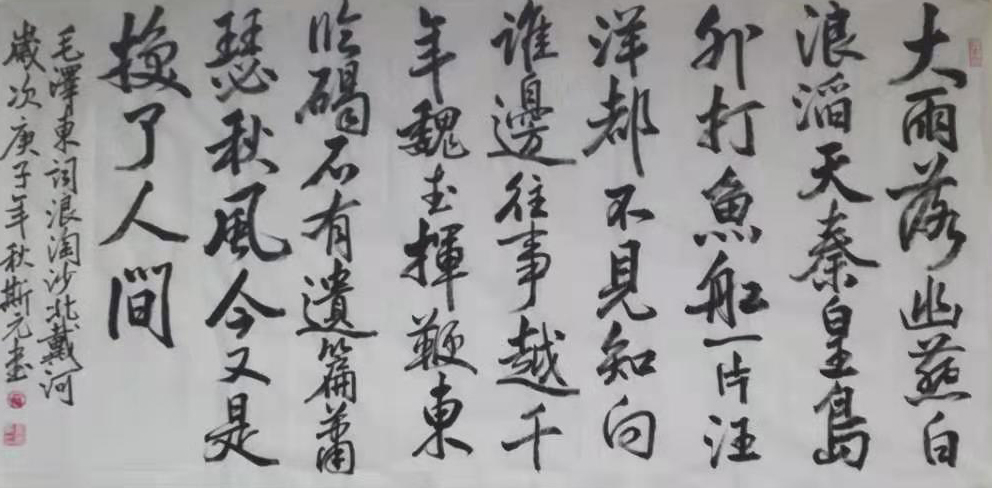 大雨落幽燕白
浪滔天秦皇島
外打魚船一片汪
洋都不見知向
誰邊往事越千
年魏武揮鞭東
臨碣石有遺篇蕭
瑟秋風今又是
換了人間
毛澤東詞浪淘沙北戴河
歲次庚子年秋斯元書